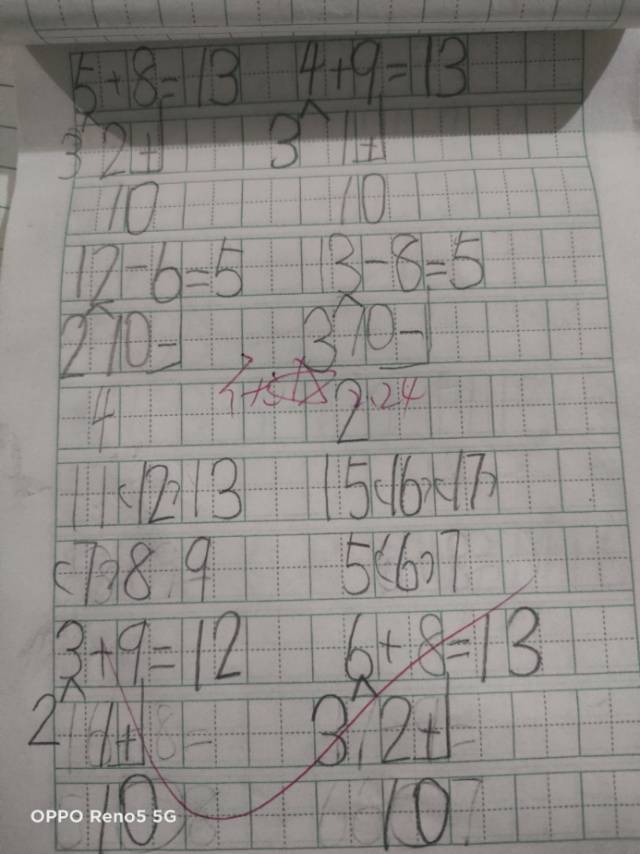 5+8=13 4+9=13
3 2+ 3 1+
10 10
12-6=5 13-8=5
2 10- 3 10-
4 2 2.24
11(12)13 15(16)(17)
(7)8 9 5(6)7
3+9=12 6+8=13
2 1+ 3 2+
10 10
OPPO Reno5 5G